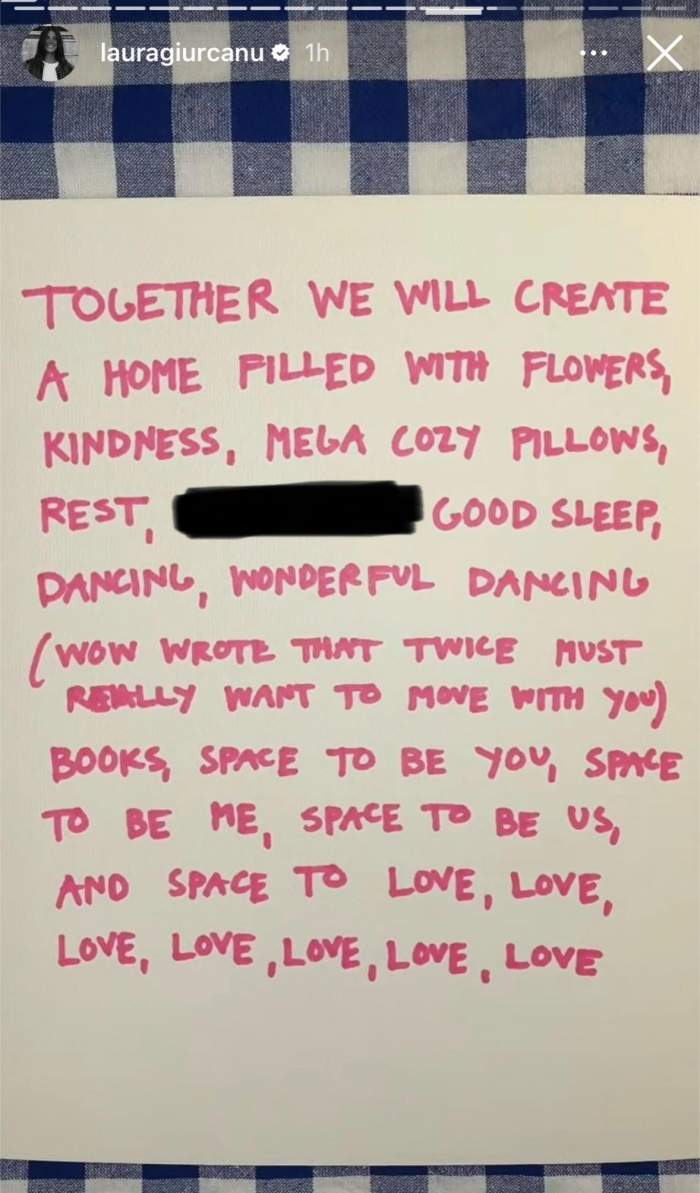 lauragiurcanu 1h
TOGETHER WE WILL CREATE
A HOME FILLED WITH FLOWERS,
KINDNESS, MEGA COZY PILLOWS,
REST, GOOD SLEEP,
DANCING, WONDERFUL DANCING
(WOW WROTE THAT TWICE MUST
REALLY WANT TO MOVE WITH YOU)
BOOKS, SPACE TO BE YOU, SPACE
TO BE ME, SPACE TO BE US,
AND SPACE TO LOVE, LOVE,
LOVE, LOVE, LOVE, LOVE, LOVE